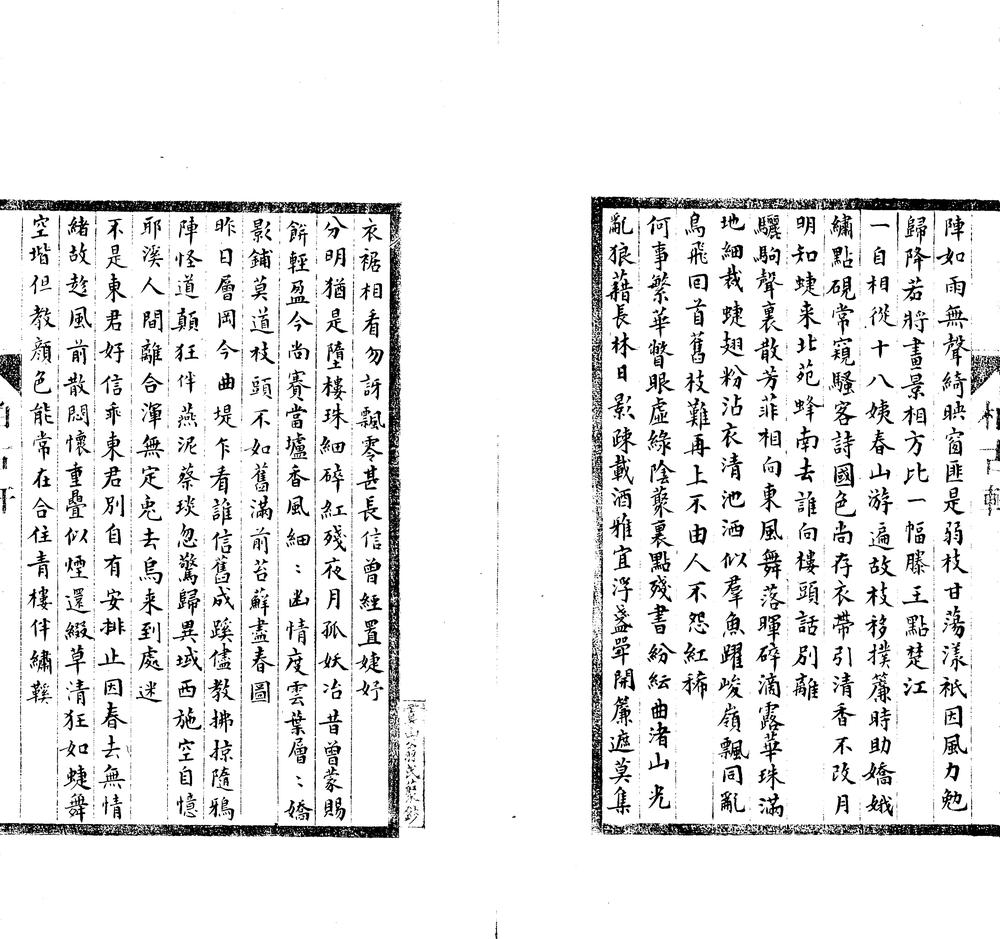 陣如雨無聲綺映窗匪是弱枝甘蕩漾祇因風力勉
歸降若將畫景相方比一幅滕王點楚江
一自相從十八姨春山游遍故枝移撲簾時助嬌娥
繡點硯常窺騷客詩國色尚存衣帶引清香不改月
明知蜨来北苑蜂南去誰向樓頭話別離
驪駒聲裏散芳菲相向東風舞落暉碎滴露華珠滿
地細裁蜨翅粉沾衣清池洒似羣魚躍峻嶺飄同亂
鳥飛回首舊枝難再上不由人不怨紅稀
何事繁華瞥眼虛綠陰藂裏點殘書紛紜曲渚山光
亂狼藉長林日影疎載酒雅宜浮盞斝開簾遮莫集
衣裾相看勿訝飄零甚長信曾經置婕妤
分明猶是墮樓珠細碎紅殘夜月孤妖冶昔曾蒙賜
餅輕盈今尚賽當壚香風細〻幽情度雲葉層〻嬌
影鋪莫道枝頭不如舊滿前苔蘚盡春圖
昨日層岡今曲堤乍看誰信舊成蹊儘教拂掠隨鴉
陣怪道顛狂伴燕泥蔡琰忽驚歸異域西施空自憶
耶溪人間離合渾無定兎去烏来到處迷
不是東君好信乖東君別自有安排止因春去無情
緒故趂風前散悶懷重疊似煙還綴草清狂如蜨舞
空堦但教顔色能常在合住青樓伴繡鞵